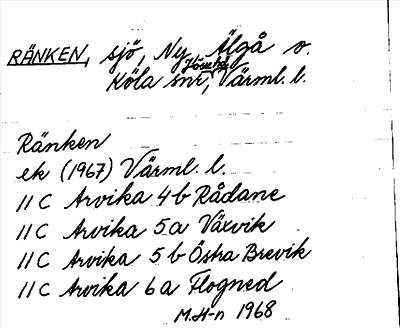 RÄNKEN, sjö, Ny, Älgå o.
Köla snr, Jösse hd, Värml. l.
Ränken
ek (1967) Värml. l.
11 C Arvika 4 b Rådane
11 C Arvika 5 a Växvik
11 C Arvika 5 b Östra Brevik
11 C Arvika 6 a Flogned
M.H-n 1968